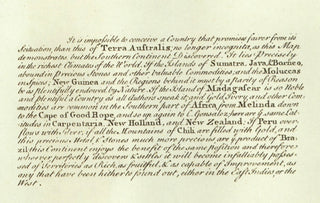 It is impossible to conceive a Country that promises fairer from its
Scituation, than this of Terra Australis; no longer incognita, as this Map
demonstrates, but the Southern Continent Discovered. It lies Precisely
in the richest Climates of the World. If the Islands of Sumatra, Java, & Borneo,
abound in Precious Stones and other Valuable Commodities; and the Moluccas
in Spices; New Guinea and the Regions behind it must by a parity of Reason
be as plentifully endowed by Nature. If the Island of Madagascar is so Noble
and plentiful a Country as all Authors speak it; and Gold, Ivory, and other Com-
modities are common in the Southern part of Africa, from Melinda down
to the Cape of Good Hope, and so up again to C. Gonsalez; here are ye. same Lati-
tudes in Carpentaria, New Holland, and New Zealand; If Peru over-
flows with Silver, if all the Mountains of Chili are filled with Gold, and
this precious Metal, & Stones much more precious are ye. product of Bra-
zil, this Continent enjoys the benefit of the same position and therefore
whoever perfectly discovers & settles it will become infallibly posses-
sed of Territories as Rich, as fruitful, & as capable of Improvement, as
any that have been hitherto found out, either in the East Indies, or the
West.